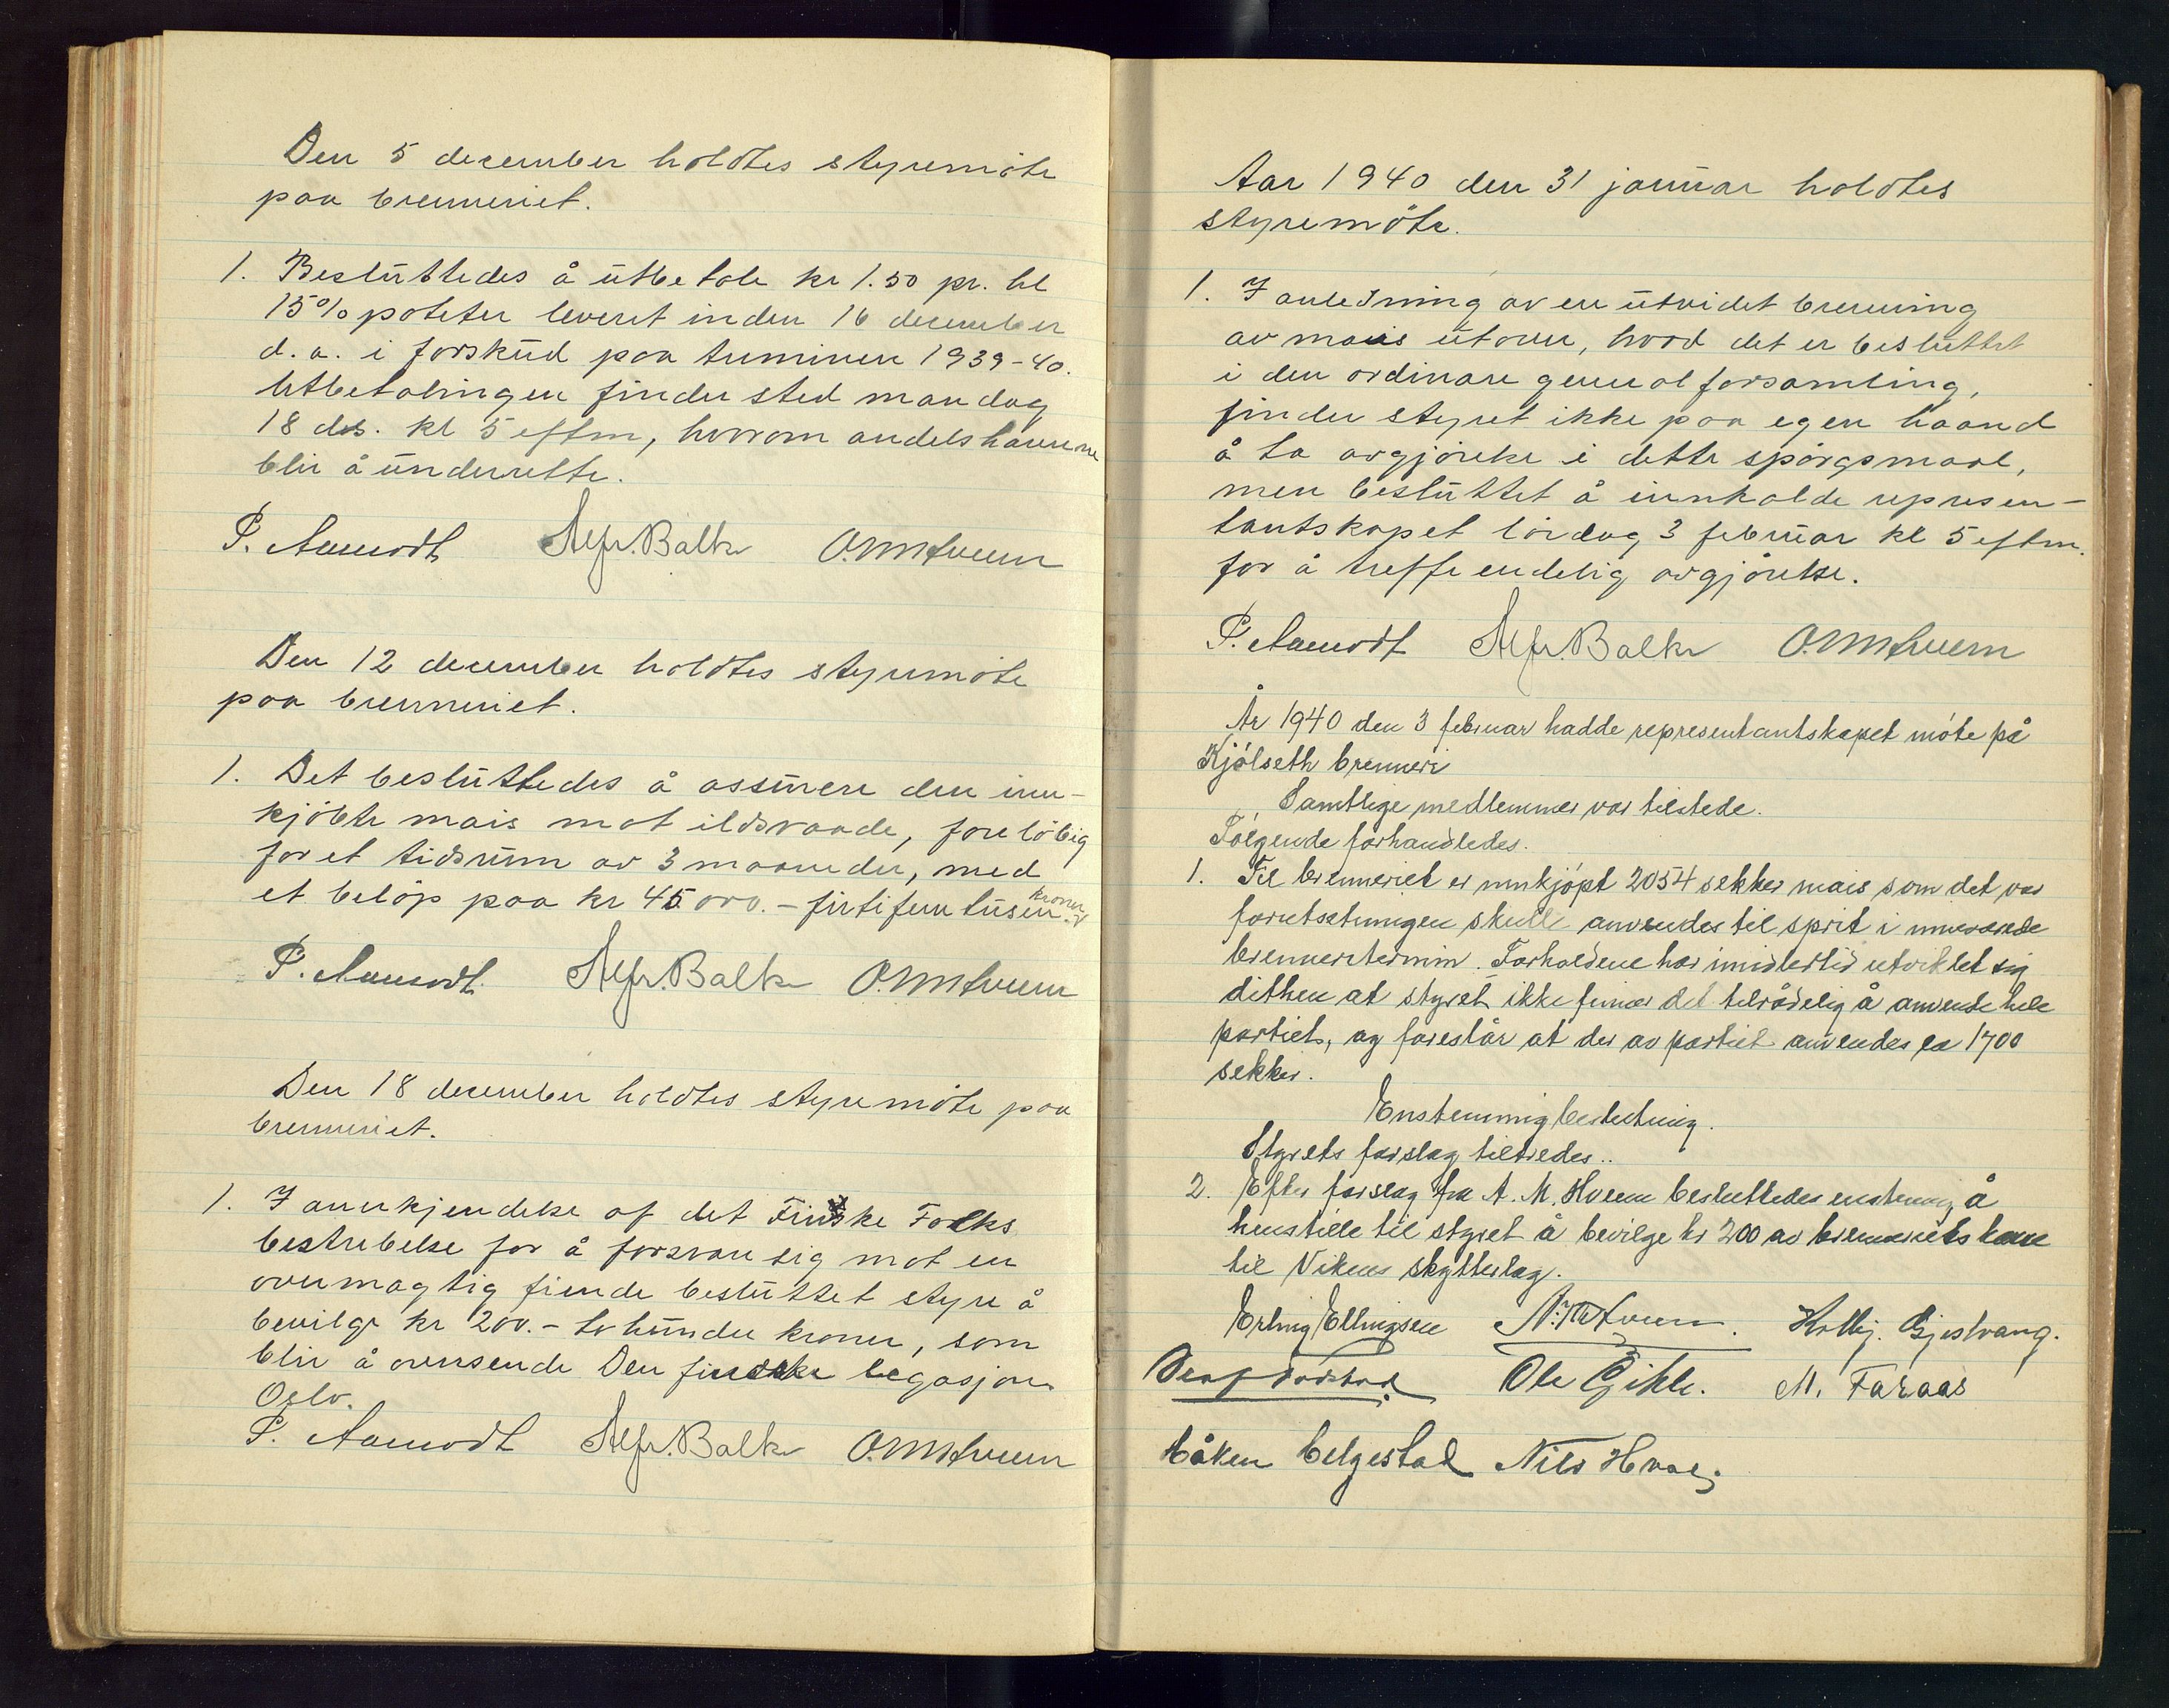 Den 5 december holdtes styremöte
paa brenneriet.
1. Besluttedes å utbetale kr 1.50 pr. hl
15% poteter leveret inden 16 december
d.a. i forskud paa terminen 1939-40.
Utbetalingen finder sted mandag
18 des. kl 5 eftm, hvorom andelshaverne
blir å underrette.
P. Aamodt Alfr. Balke O.M. Hveem
Den 12 december holdtes styremöte
paa brenneriet.
1. Det besluttedes å assurere den inn-
kjöbte mais mot ildsvaade, forelöbig
for et tidsrum av 3 maaneder, med
et belöp paa kr 45000.- firtifemtusen kroner
P. Aamodt. Alfr. Balke O.M. Hveem
Den 18 december holdtes styremöte paa
brenneriet.
1. I annerkjendelse af det Finske Folks
bestrebelse for å forsvare sig mot en
overmagtig fiende besluttet styre å
bevilge kr 200.- tohundre kroner, som
blir å oversende Den finske legasjon
Oslo.
P. Aamodt Alfr. Balke O.M. Hveem
Aar 1940 den 31 januar holdtes
styremöte.
1. I anledning av en utvidet brenning
av mais utover, hvad det er besluttet
i den ordinære generalforsamling,
finder styret ikke paa egen haand
å ta avgjörelse i dette spörgsmaal,
men besluttet å innkalde represen-
tantskapet lördag 3 februar kl 5 eftm.
for å treffe endelig avgjörelse.
P. Aamodt Alfr. Balke O.M. Hveem
År 1940 den 3 februar hadde representantskapet möte på
Kjölseth brenneri
Samtlige medlemmer var tilstede.
Fölgende forhandledes.
1. Til brenneriet er innkjöpt 2054 sekker mais som det var
forutsetningen skulle anvendes til sprit i inneværende
brenneritermin. Forholdene har imidlertid utviklet sig
dithen at styret ikke finner det tilrådelig å anvende hele
partiet, og foreslår at der av partiet anvendes ca 1700
sekker.
Enstemmig beslutning.
Styrets forslag tiltredes..
2. Efter forslag fra A. M. Hveem besluttedes enstemmig å
henstille til styret å bevilge kr 200 av brenneriets kasse
til Vikens skytterlag.
Erling Ellingsen A. M. Hveem. Hallbj. Gjestvang.
Ole Gihle. M. Faraas
Håken Helgestad Nils Hval